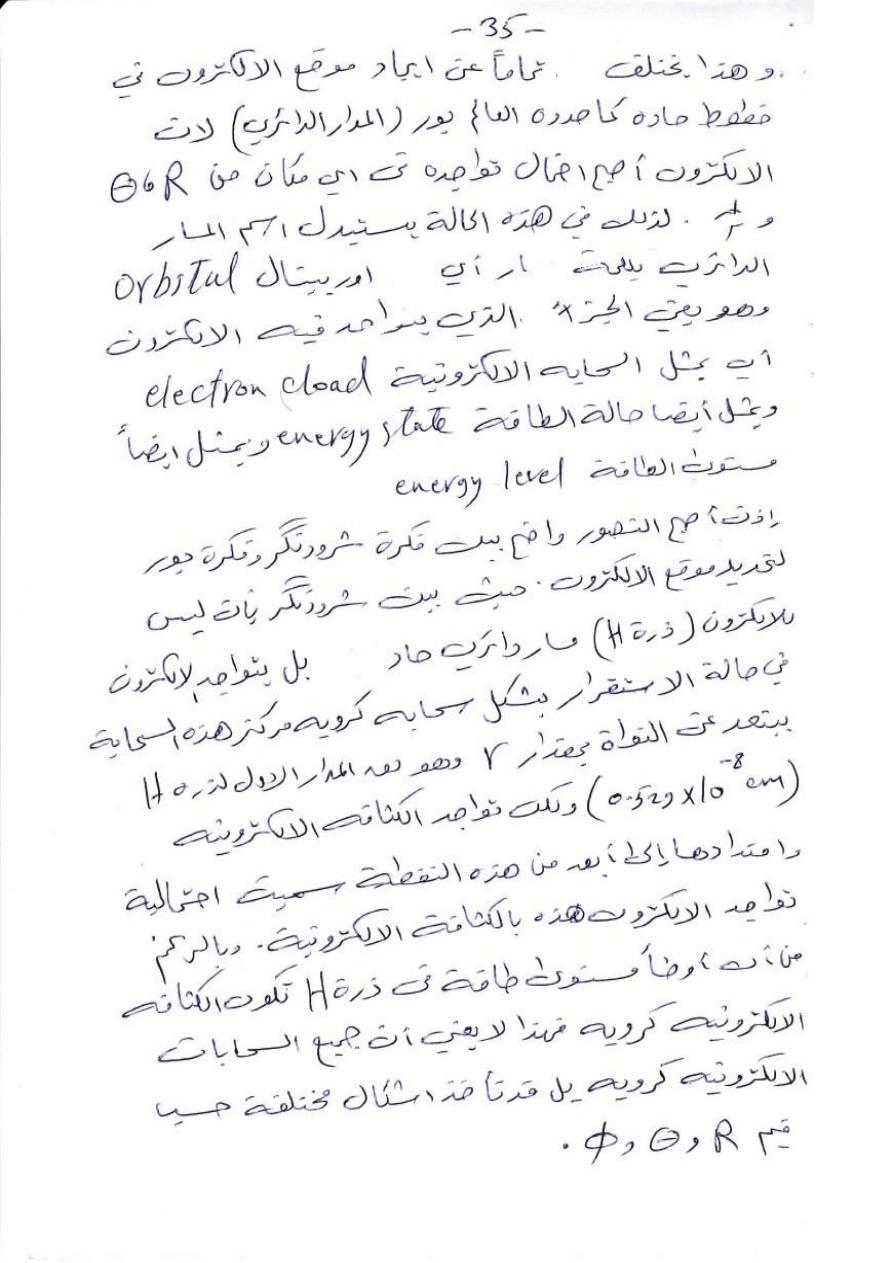 - 35 -
وهذا يختلف تماماً عن ايجاد موقع الالكترون في
خطوط حاده كما حدده العالم بور (المدار الدائري) لان
الالكترون أصبح احتمال تواجده في اي مكان من R و θ
و . لذلك في هذه الحالة يستبدل اسم المسار
الدائري بكلمة أي اوربيتال Orbital
وهو يعني الجزء الذي يتواجد فيه الالكترون
أي يمثل السحابه الالكترونية electron cload
ويمثل أيضا حالة الطاقة energy state ويمثل ايضاً
مستوى الطاقة energy level
إذن أصبح التصور واضح بين فكرة شرودنگر وفكرة بور
لتحديد موقع الالكترون. حيث بين شرودنگر بأن ليس
للالكترون (ذرة H) مسار دائري حاد بل يتواجد الالكترون
في حالة الاستقرار بشكل سحابه كرويه مركز هذه السحابة
يبتعد عن النواة بمقدار r وهو بعد المدار الاول لذره H
(0.529 x 10⁻⁸ cm) ولكن تواجد الكثافه الالكترونيه
وامتدادها إلى أبعد من هذه النقطة سميت احتمالية
تواجد الالكترون هذه بالكثافة الالكترونية. وبالرغم
من أن أوطأ مستوى طاقة في ذرة H تكون الكثافه
الالكترونيه كرويه فهذا لا يعني أن جميع السحابات
الالكترونيه كرويه بل قد تأخذ اشكال مختلفة حسب
قيم R و θ و ϕ .